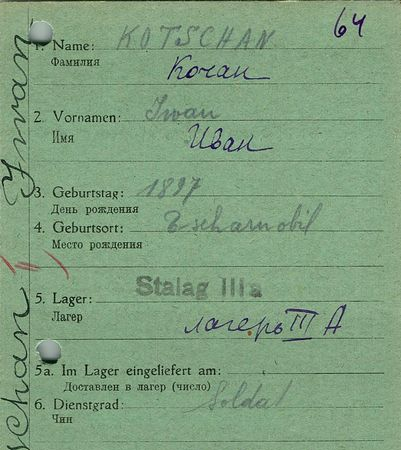 64
1. Name: KOTSCHAN
Фамилия Кочан
2. Vornamen: Iwan
Имя Иван
3. Geburtstag: 1897
День рождения
4. Geburtsort: Tscharnobil
Место рождения
Stalag IIIa
5. Lager:
Лагер лагерь III А
5a. Im Lager eingeliefert am:
Доставлен в лагер (число)
6. Dienstgrad: Soldat
Чин
schan Iwan